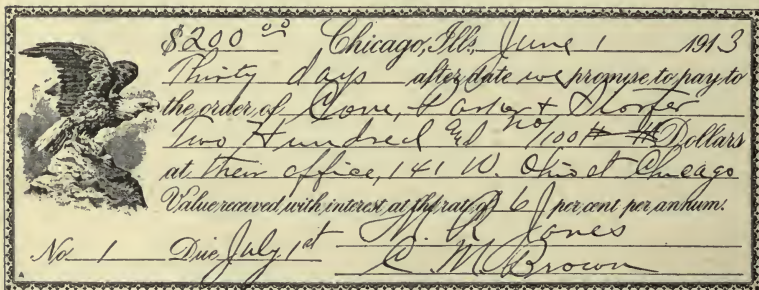 $200 00 Chicago, Ills., June 1 1913
Thirty days after date we promise to pay to
the order of Cone, & 
Two Hundred and no/100 Dollars
at their office, 141 W. Ohio st Chicago
Value received, with interest at the rate of 6 per cent per annum.
M. R. Jones
No 1 Due July 1st
C M Brown